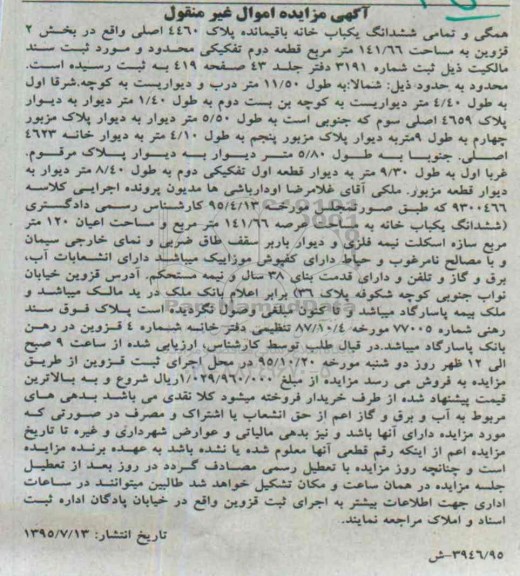 آگهی مزایده اموال غیر منقول
همگی و تمامی ششدانگ یکباب خانه باقیمانده پلاک ۴۴۶۰ اصلی واقع در بخش ۲
قزوین به مساحت ۱۴۱/۶۶ متر مربع قطعه دوم تفکیکی محدود و مورد ثبت سند
مالکیت ذیل ثبت شماره ۳۱۹۱ دفتر جلد ۴۳ صفحه ۴۱۹ به ثبت رسیده است.
محدود به حدود ذیل: شمالا:به طول ۱۱/۵۰ متر درب و دیواریست به کوچه.شرقا اول
به طول ۴/۴۰ متر دیواریست به کوچه بن بست دوم به طول ۱/۴۰ متر دیوار به دیوار
پلاک ۴۶۵۹ اصلی سوم که جنوبی است به طول ۵/۵۰ متر دیوار به دیوار پلاک مزبور
چهارم به طول ۹متربه دیوار پلاک مزبور پنجم به طول ۴/۱۰ متر به دیوار خانه ۴۶۲۳
اصلی. جنوبا به طول ۵/۸۰ متر دیوار به دیوار پلاک مرقوم.
غربا اول به طول ۹/۳۰ متر به دیوار قطعه اول تفکیکی دوم به طول ۸/۴۰ متر دیوار به
دیوار قطعه مزبور. ملکی آقای غلامرضا اودارباشی ها مدیون پرونده اجرایی کلاسه
۹۳۰۰۴۶۶ که طبق صورتمجلس مورخه ۹۵/۴/۱۳ کارشناس رسمی دادگستری
(ششدانگ یکباب خانه به مساحت عرصه ۱۴۱/۶۶ متر مربع و مساحت اعیان ۱۲۰ متر
مربع سازه اسکلت نیمه فلزی و دیوار باربر سقف طاق ضربی و نمای خارجی سیمان
و با مصالح نامرغوب و حیاط دارای کفپوش موزاییک میباشد دارای انشعابات آب،
برق و گاز و تلفن و دارای قدمت بنای ۳۸ سال و نیمه مستحکم. آدرس قزوین خیابان
نواب جنوبی کوچه شکوفه پلاک ۳۶) برابر اعلام بانک ملک در ید مالک میباشد و
ملک بیمه پاسارگاد میباشد و تا کنون مبلغی وصول نگردیده است پلاک فوق سند
رهنی شماره ۷۷۰۰۵ مورخه ۸۷/۱۰/۴ تنظیمی دفتر خانه شماره ۴ قزوین در رهن
بانک پاسارگاد میباشد.در قبال طلب توسط کارشناس، ارزیابی شده از ساعت ۹ صبح
الی ۱۲ ظهر روز دو شنبه مورخه ۹۵/۱۰/۲۰ در محل اجرای ثبت قزوین از طریق
مزایده به فروش می رسد مزایده از مبلغ ۱/۰۲۹/۹۶۰/۰۰۰ریال شروع و به بالاترین
قیمت پیشنهاد شده از طرف خریدار فروخته میشود کلا نقدی می باشد بدهی های
مربوط به آب و برق و گاز اعم از حق انشعاب یا اشتراک و مصرف در صورتی که
مورد مزایده دارای آنها باشد و نیز بدهی مالیاتی و عوارض شهرداری و غیره تا تاریخ
مزایده اعم از اینکه رقم قطعی آنها معلوم شده یا نشده باشد به عهده برنده مزایده
است و چنانچه روز مزایده با تعطیل رسمی مصادف گردد در روز بعد از تعطیل
جلسه مزایده در همان ساعت و مکان تشکیل خواهد شد طالبین میتوانند در ساعات
اداری جهت اطلاعات بیشتر به اجرای ثبت قزوین واقع در خیابان پادگان اداره ثبت
اسناد و املاک مراجعه نمایند.
تاریخ انتشار: ۱۳۹۵/۷/۱۳
۳۹۴۶/۹۵-ش